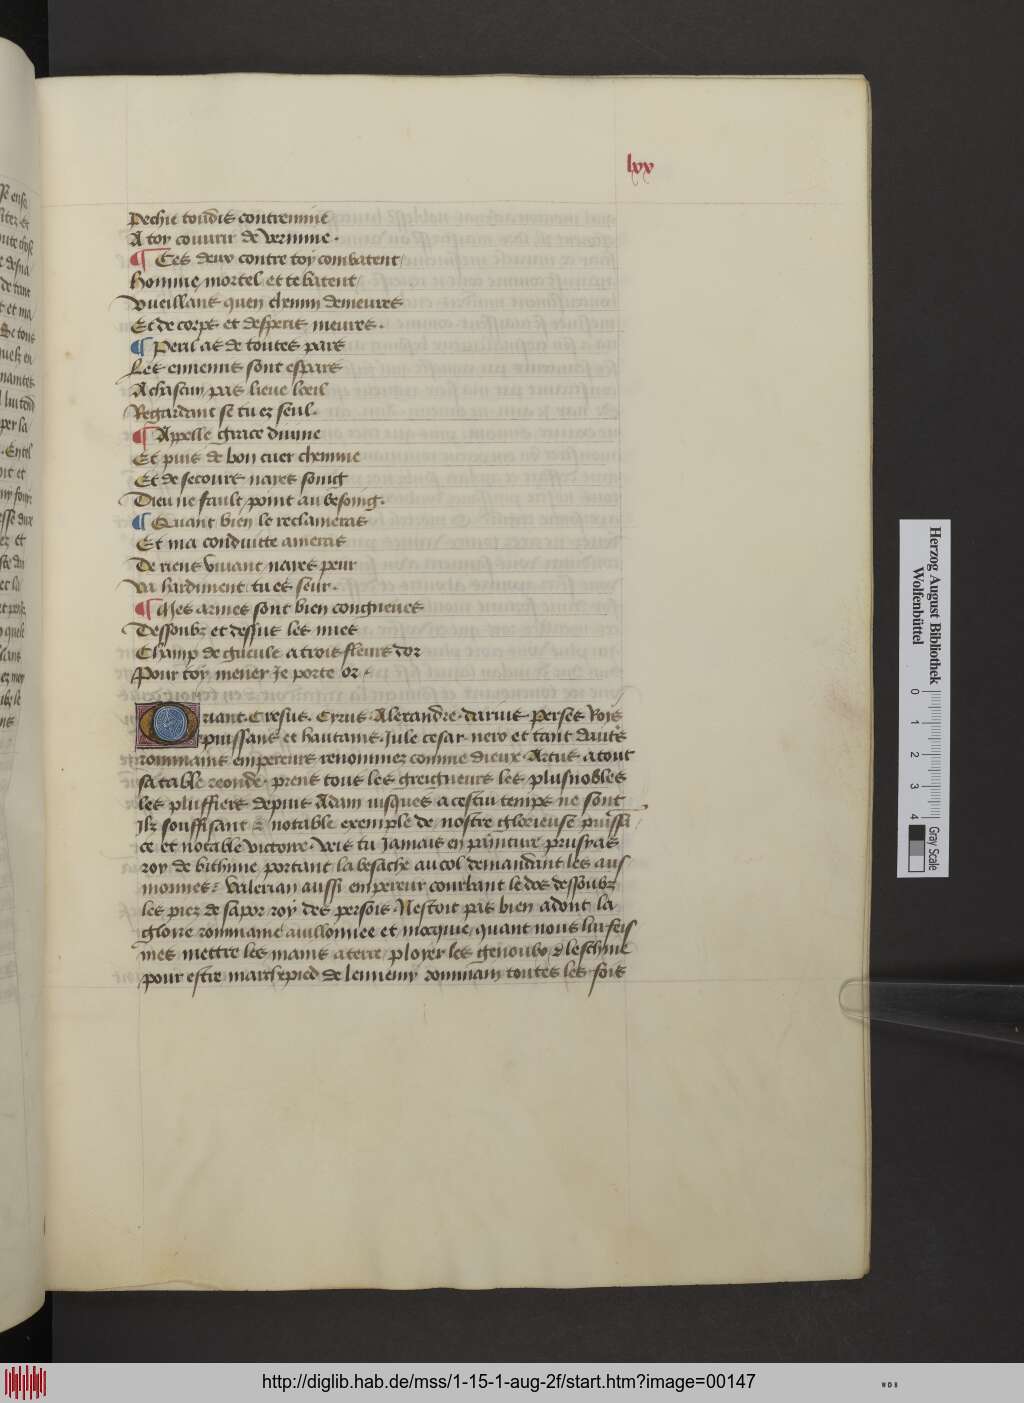 lxx
Pechie toudis contremine
A toy couurir de vermine.
¶ Ces deux contre toy combatent
Homme mortel et te batent
Vueillans quen chemin demeures
Et de corps et desperit meures.
¶ Peril as de toutes pars
Les ennemis sont espars
A chascun pas lieue loeil
Regardant se tu ez seul.
¶ Appelle grace diuine
Et puis de bon cuer chemine
Et de secours nares soing
Dieu ne fault point au besoing.
¶ Quant bien le reclameras
Et ma conduitte ameras
De riens viuant nares peur
Va hardiment tu es seur.
¶ Mes armes sont bien congneues
Dessoubz et dessus les nues
Champ de gueule a trois fleurs dor
Pour toy mener je porte or.
Oriant. Cresus. Cyrus. Alexandre. darius. Perses Roys
puissans et haultains. Jule cesar. nero et tant dautres
rommains empereurs renommez comme dieux. Artus a tout
sa table reonde. prens tous les greigneurs les plus nobles
les plus fiers depuis Adam iusques a cestui temps ne sont
Ilz souffisant & notable exemple de nostre glorieuse puissa
ce et notable victoire. Veis tu Jamais en painture prusyas
roy de bithinie portant la besache au col demandant les aus
mosnes: Valerian aussi empereur courbant le dos dessoubz
les piez de sapor roy des persois. Nestoit pas bien adont la
gloire rommaine auillonnee et mocquie, quant nous lui feis
mes mettre les mains a terre ployer les genoulx & leschine
pour estre marchepied de lennemy rommain toutes les fois
Herzog August Bibliothek
Wolfenbüttel
0 1 2 3 4 Gray Scale
http://diglib.hab.de/mss/1-15-1-aug-2f/start.htm?image=00147